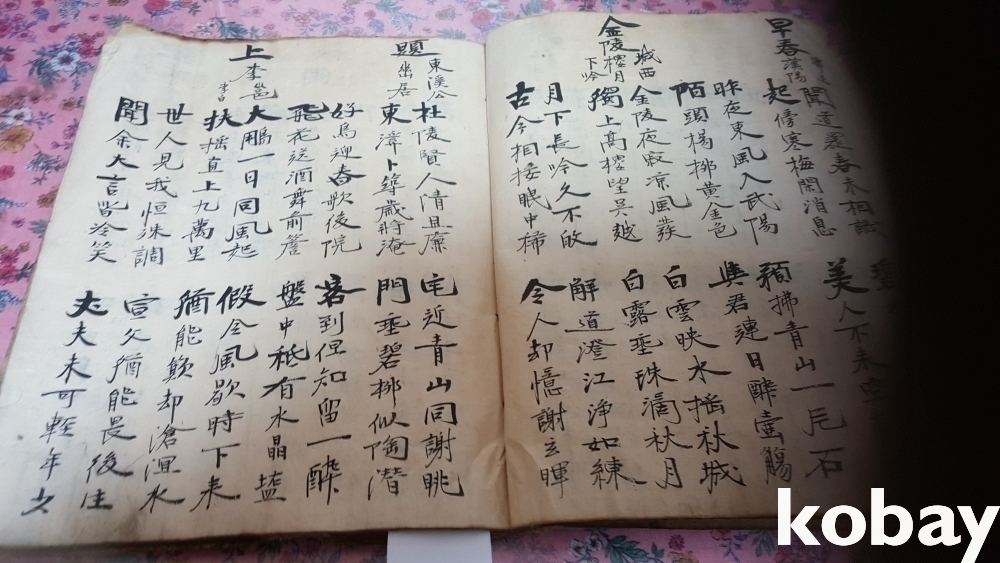 早春
漢陽
聞道還春未相識
起傍寒梅閑消息
美人不來空
昨夜東風入武陽
陌頭楊柳黃金色
預拂青山一片石
與君連日醉壺觴
金陵樓月
城西
下吟
金陵夜寂涼風發
獨上高樓望吳越
白雲映水搖秋城
白露垂珠滴秋月
月下長吟久不歇
古今相接眼中稀
解道澄江淨如練
令人却憶謝玄暉
題東溪公
幽居
杜陵賢人清且廉
東溪卜築歲將淹
宅近青山同謝眺
門垂碧柳似陶潛
好鳥迎春歌後院
飛花送酒舞前簷
客到但知留一醉
盤中祗有水晶塩
上李邕
李白
大鵬一日同風起
扶搖直上九萬里
假令風歇時下來
猶能簸却滄溟水
世人見我恒殊調
聞余大言皆冷笑
宣父猶能畏後生
丈夫未可輕年少
kobay